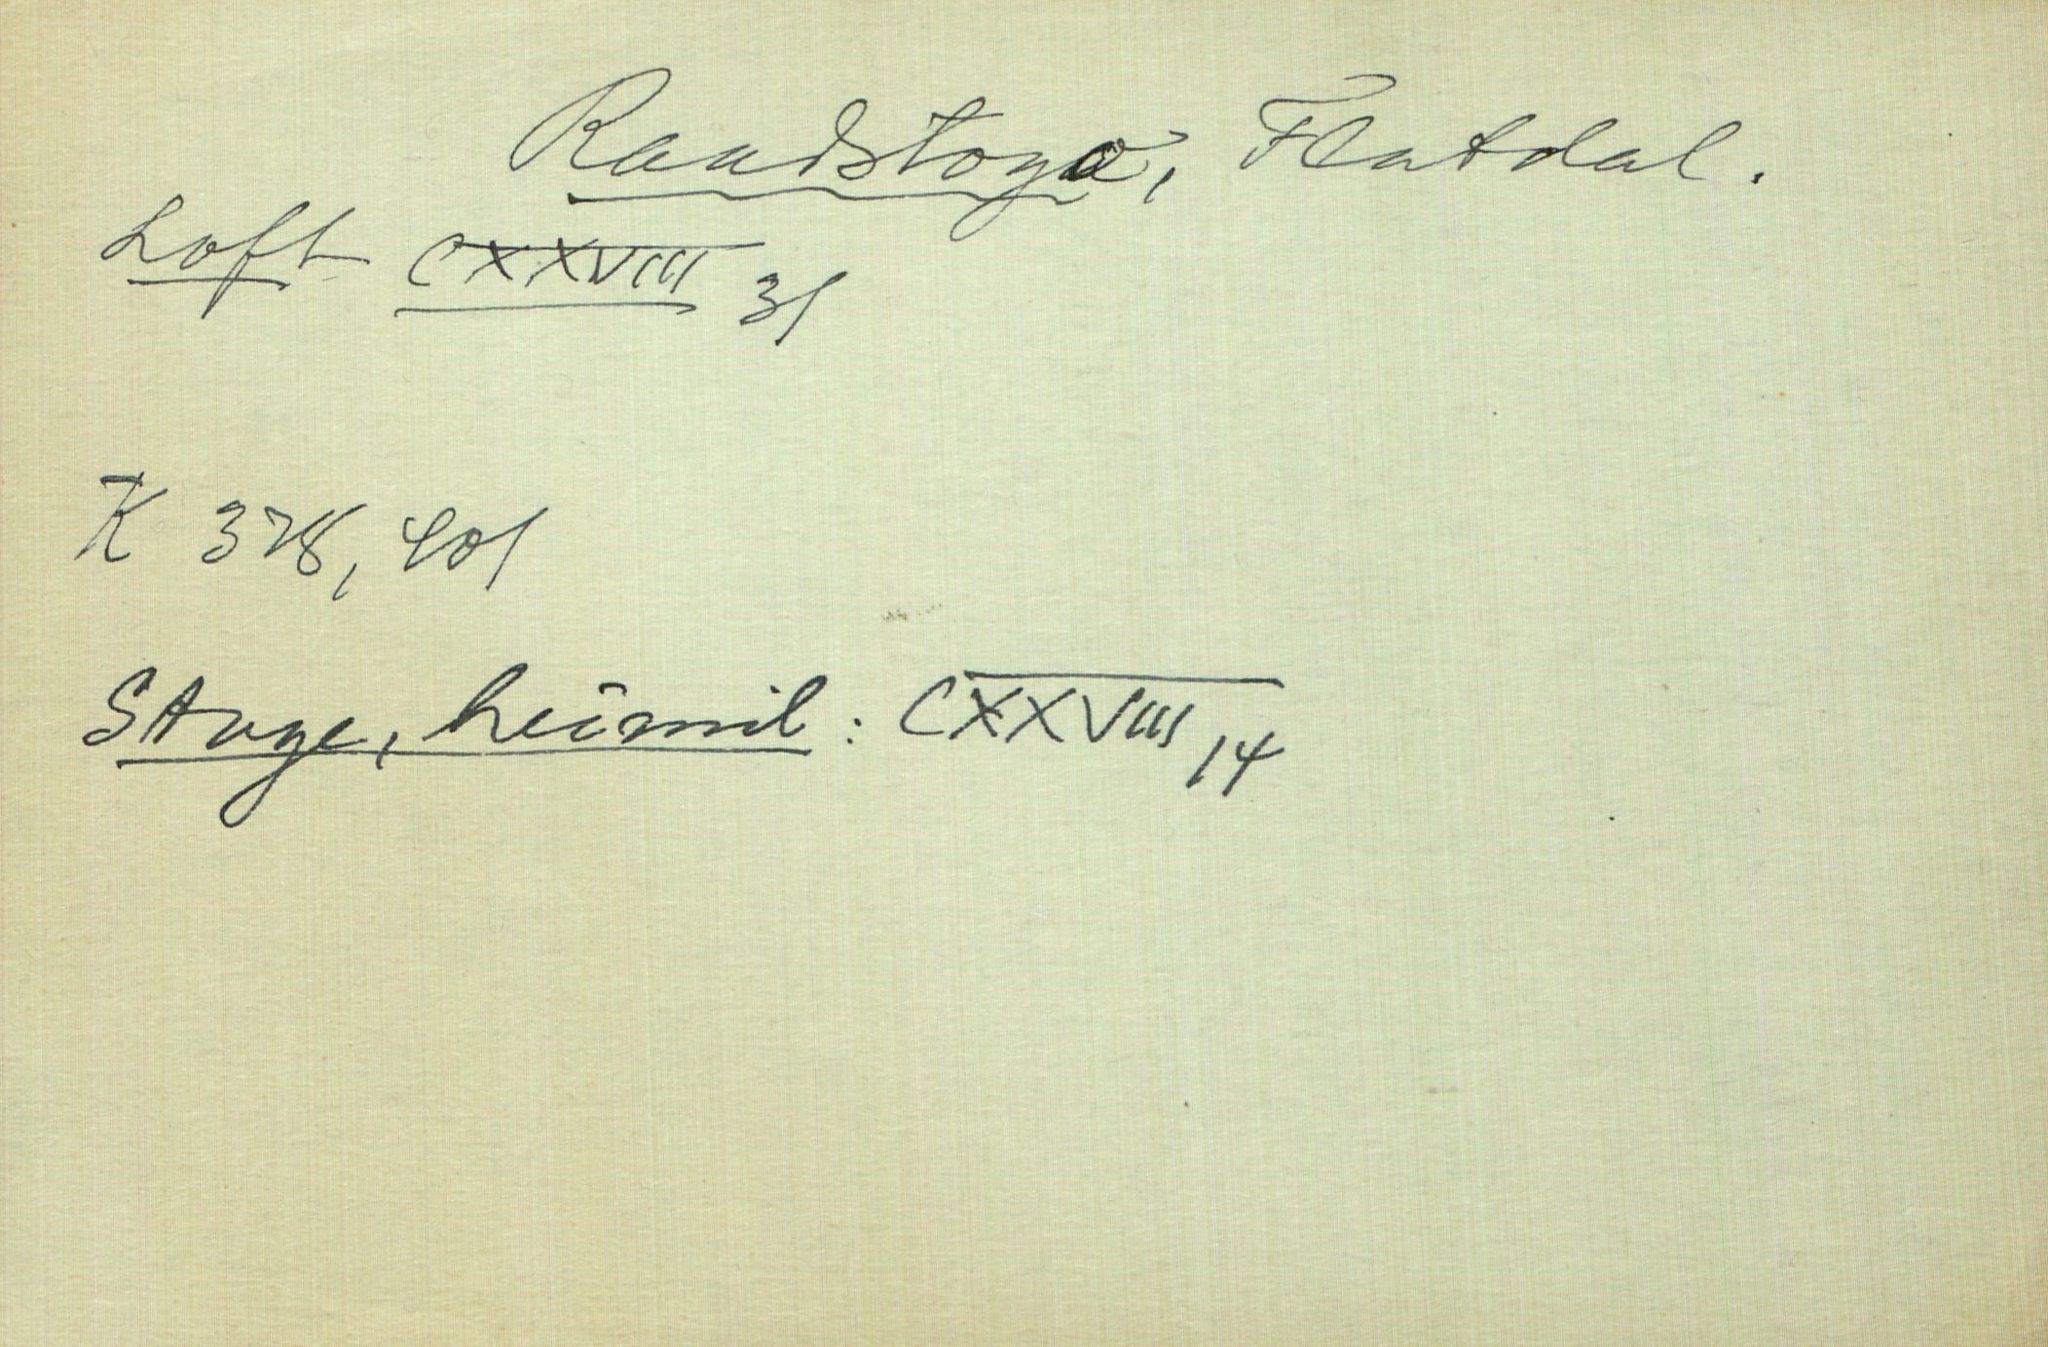 Raudstoga, Flatdal.
Loft CXXVIII 31
K 378, 401
Stuge, heimil: CXXVIII 14